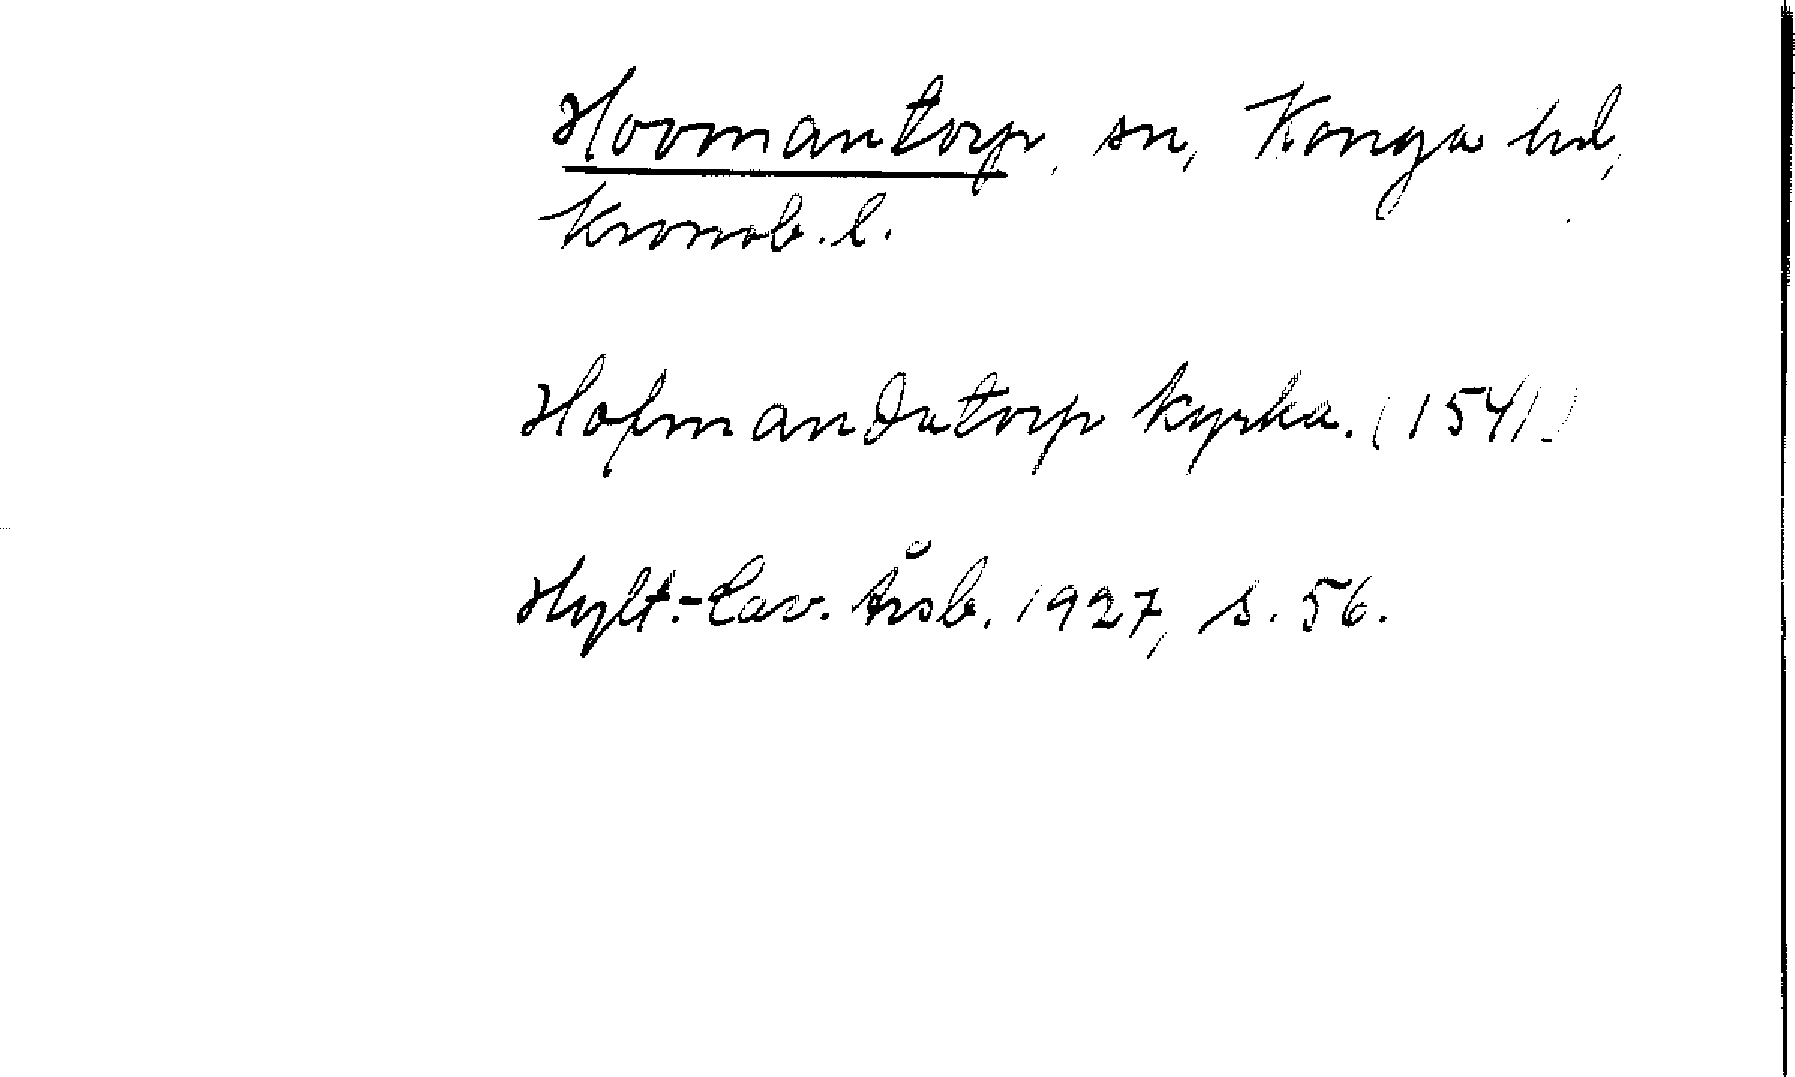 Hovmantorp, sn, Konga hd,
Kronob. l.
Hofmandatorp kyrka. (1541.)
Hylt.-Cav. Årsb. 1927, s. 56.